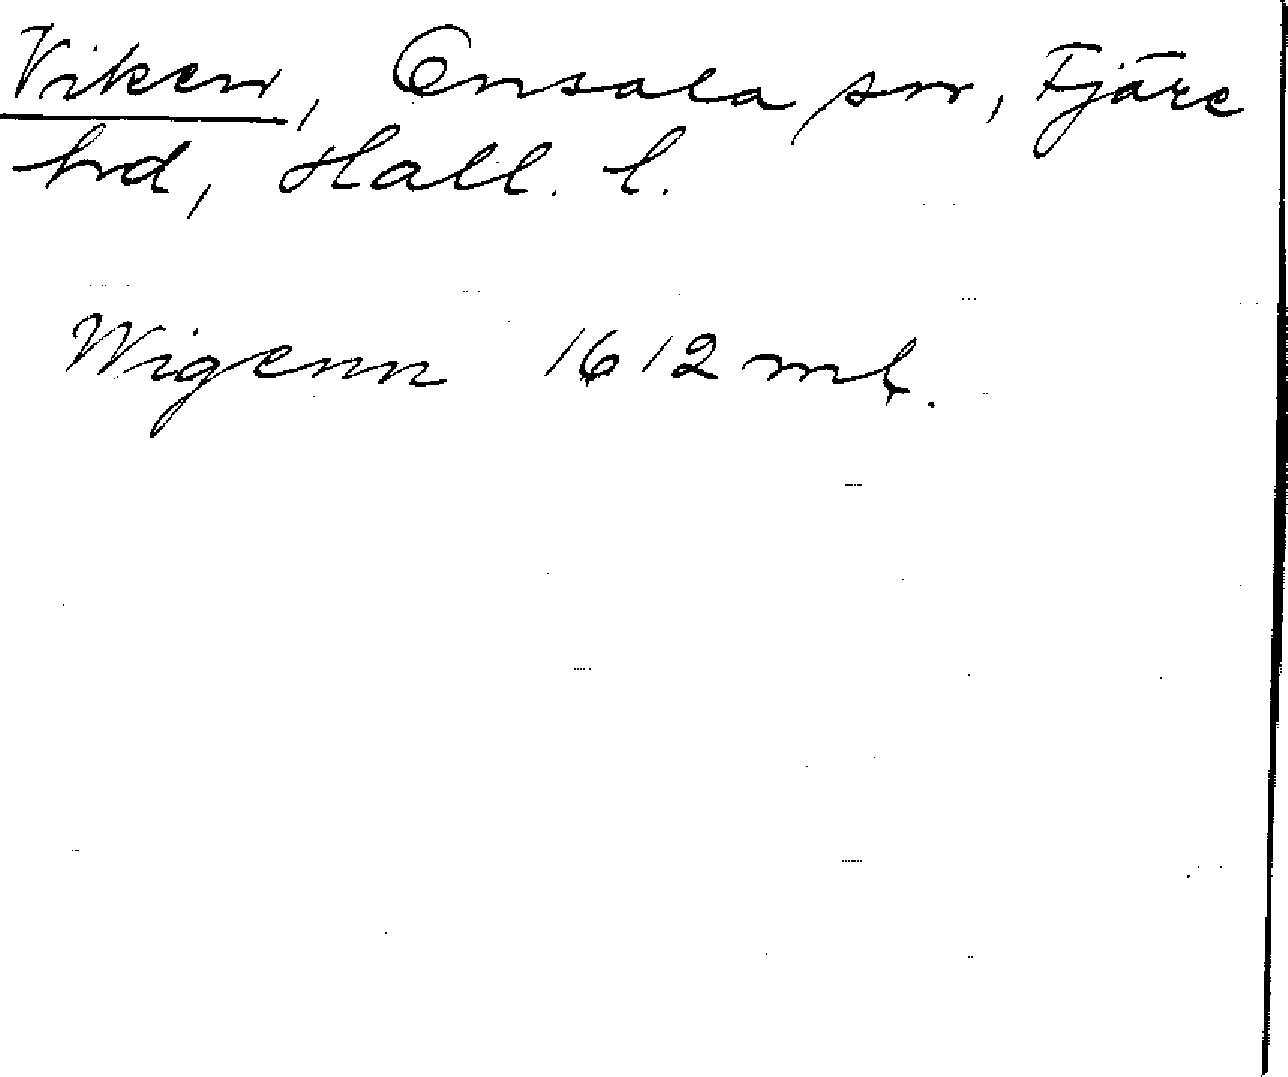 Viken, Onsala sn, Fjäre
hd, Hall. l.
Wigenn 1612 ml.